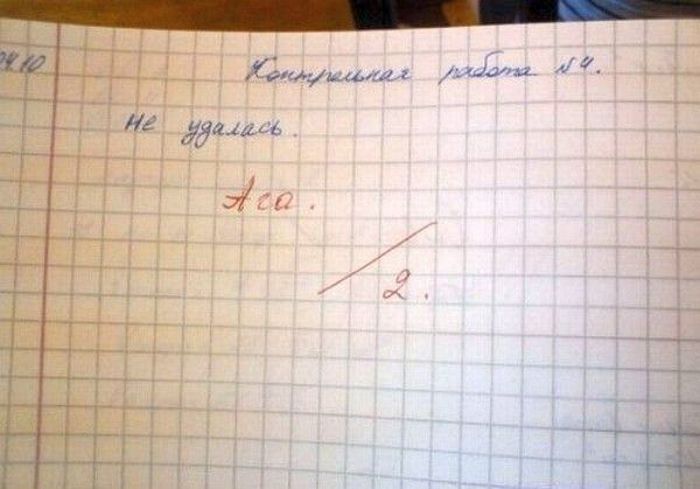 04.10
Контрольная работа №4.
не удалась.
Ага.
2.